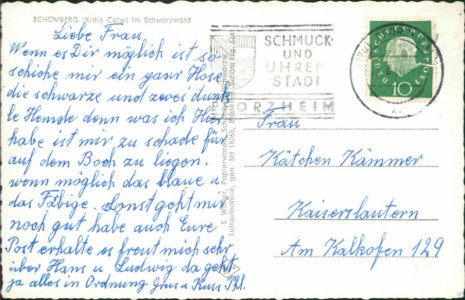 SCHÖMBERG (Kreis Calw) im Schwarzwald
Liebe Frau,
Wenn es Dir möglich ist so
schicke mir ein ganz Hose
die schwarze und zwei dunk
le Hemde denn was ich hier
habe ist mir zu schade für
auf dem Boch zu liegen.
wenn möglich das blaue u.
das Fäbige. Sonst geht mir
noch gut habe auch Eure
Post erhalte es freut mich sehr
über Hans u Ludwig da geht
ja alles in Ordnung Grus u Kuss
SCHMUCK-
UND
UHREN
STADT
PFORZHEIM
DEUTSCHE BUNDESPOST
10
Frau
Kätchen Kämmer
Kaiserslautern
Am Kalkofen 129